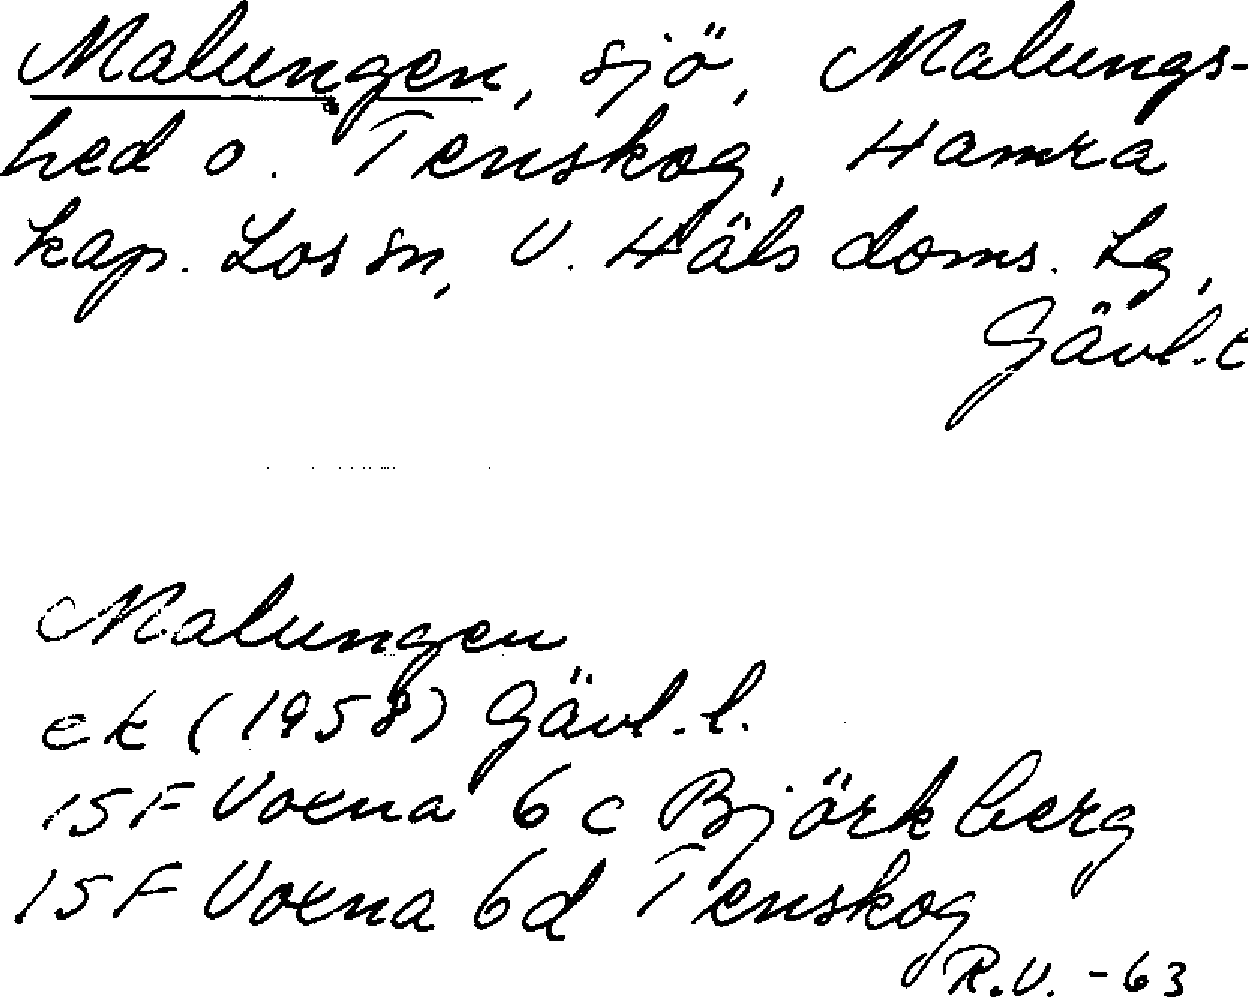 Malungen, sjö, Malungs-
hed o. Tenskog, Hamra
kap. Los sn, V. Häls doms. Lg,
Gävl. l
Malungen
ek (1958) Gävl. l.
15F Voxna 6c Björkberg
15F Voxna 6d Tenskog
R.V. -63